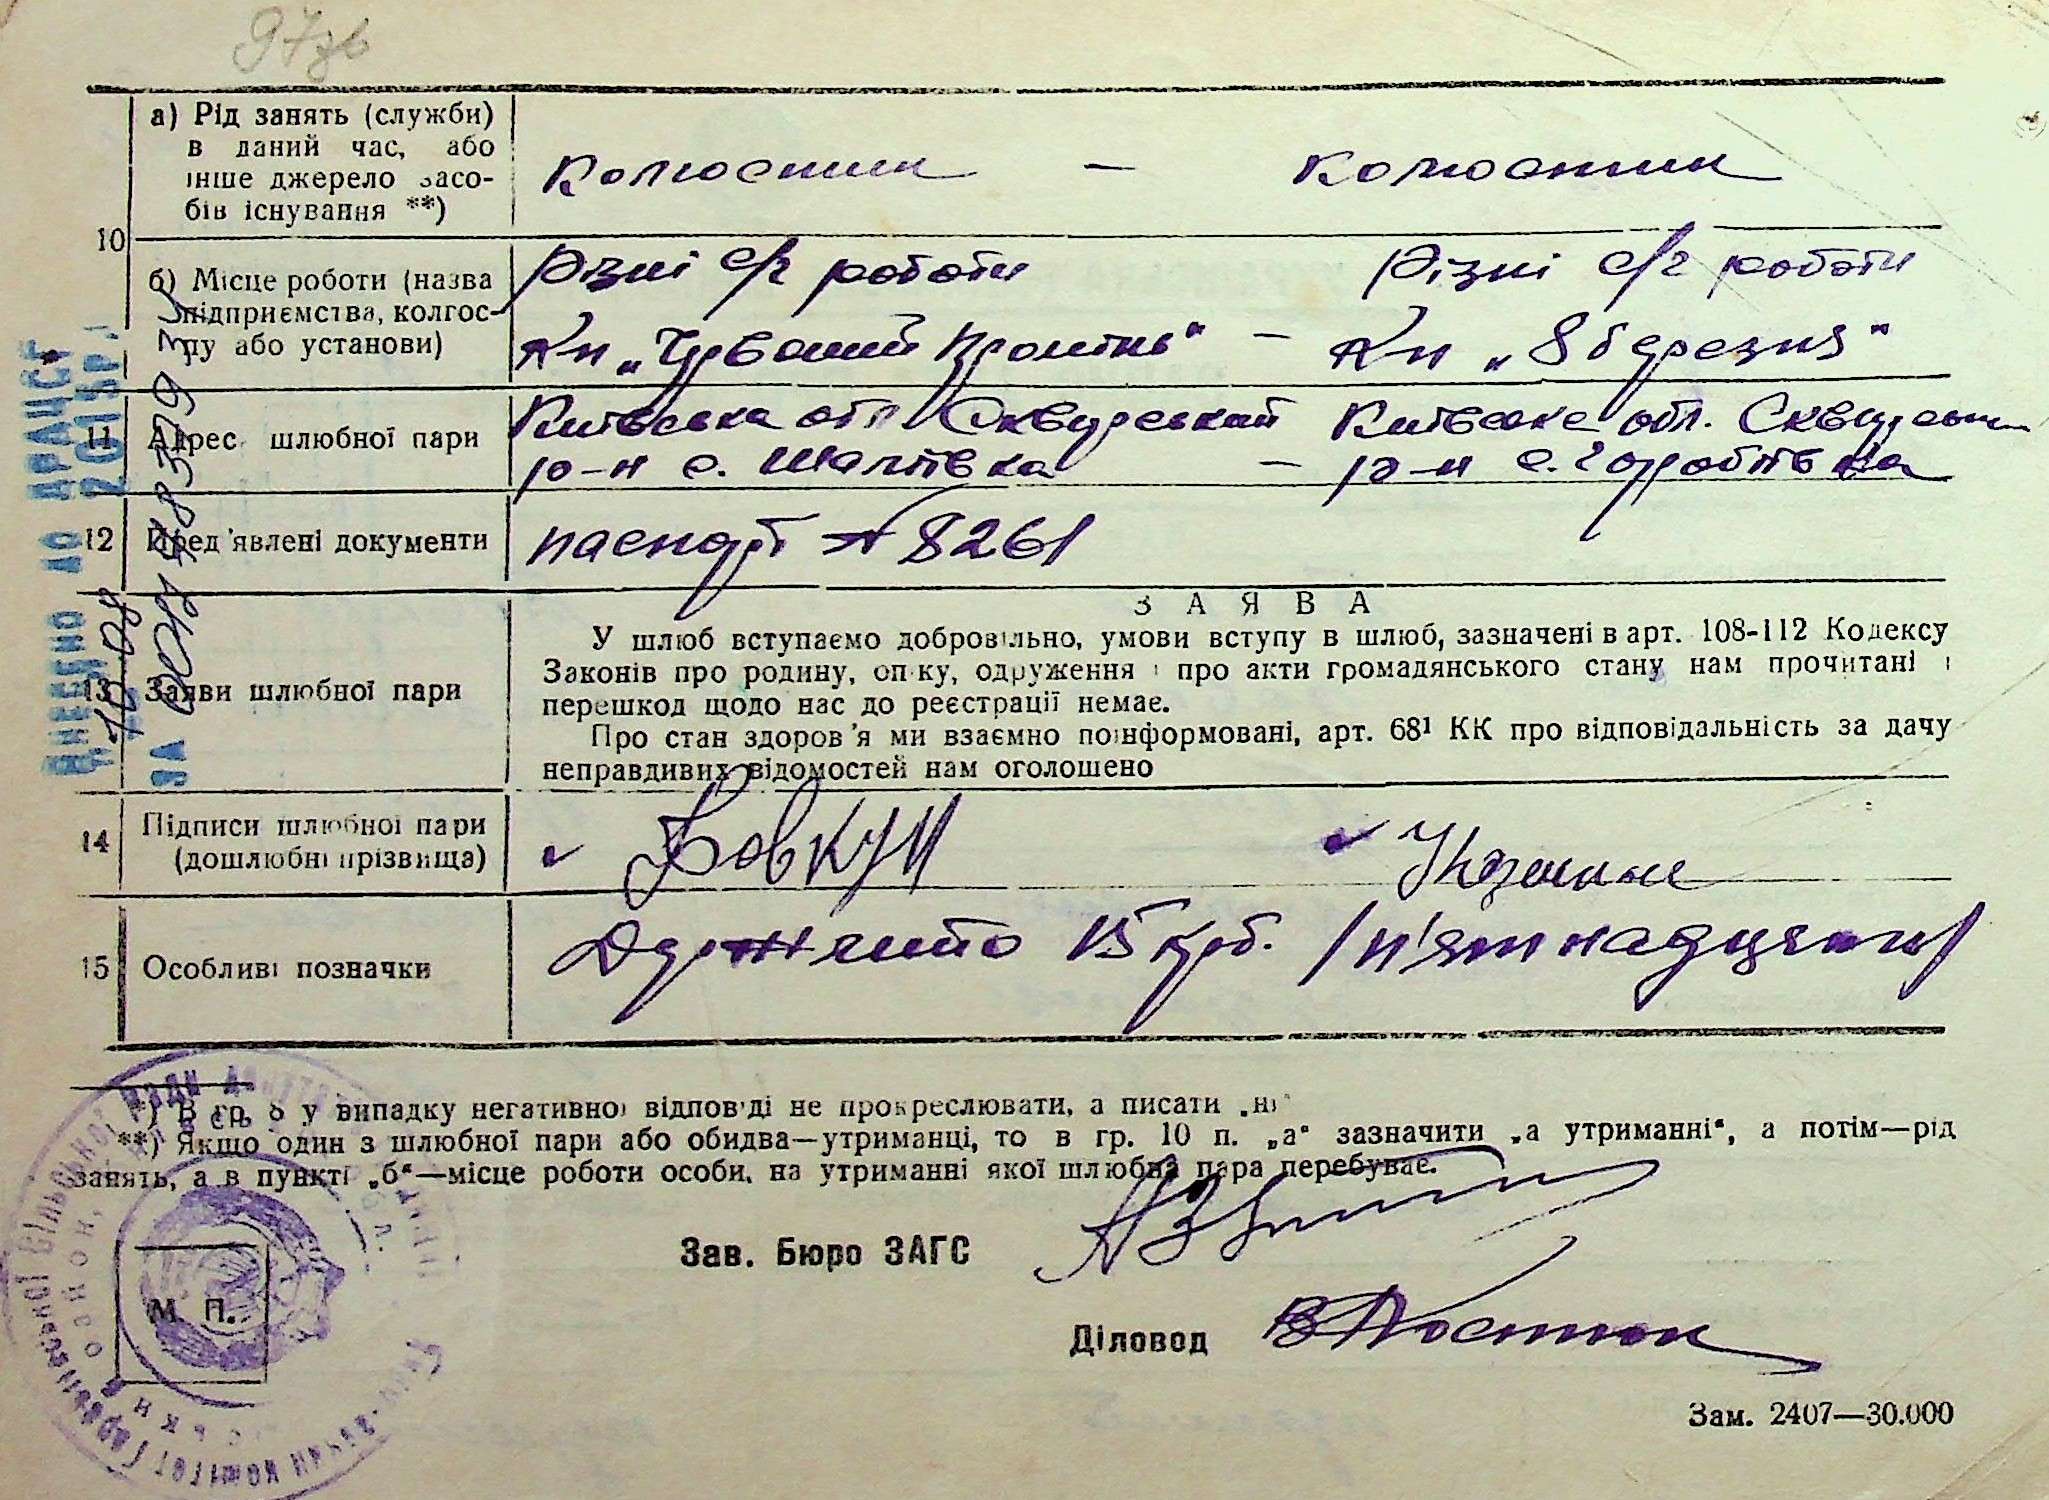 97зв
а) Рід занять (служби)
в даний час, або
інше джерело засо-
бів існування **)
колгоспник — колгоспник
10
б) Місце роботи (назва
підприємства, колгос-
пу або установи)
Різні с/г роботи Різні с/г роботи
К-п „Червоний Промінь" — К-п „8 березня"
11 Адрес шлюбної пари
Київська обл. Сквирський Київська обл. Сквирськ
р-н с. Шаліївка — р-н с. Горобіївка
12 Пред'явлені документи
паспорт № 8261
13 Заяви шлюбної пари
ЗАЯВА
У шлюб вступаємо добровільно, умови вступу в шлюб, зазначені в арт. 108-112 Кодексу
Законів про родину, опіку, одруження і про акти громадянського стану нам прочитані і
перешкод щодо нас до реєстрації немає.
Про стан здоров'я ми взаємно поінформовані, арт. 68¹ КК про відповідальність за дачу
неправдивих відомостей нам оголошено
14 Підписи шлюбної пари
(дошлюбні прізвища)
Вовкун
15 Особливі позначки
Одержано 15 крб. /п'ятнадцять/
ВНЕСЕНО ДО ДРАЦСГ
10.08 2015р.
ЗА
*) В гр. 8 у випадку негативної відповіді не прокреслювати, а писати „ні"
**) Якщо один з шлюбної пари або обидва—утриманці, то в гр. 10 п. „а" зазначити „а утриманні", а потім—рід
занять, а в пункті „б"—місце роботи особи, на утриманні якої шлюбна пара перебуває.
Зав. Бюро ЗАГС
М. П.
Діловод В Костюк
Зам. 2407—30.000